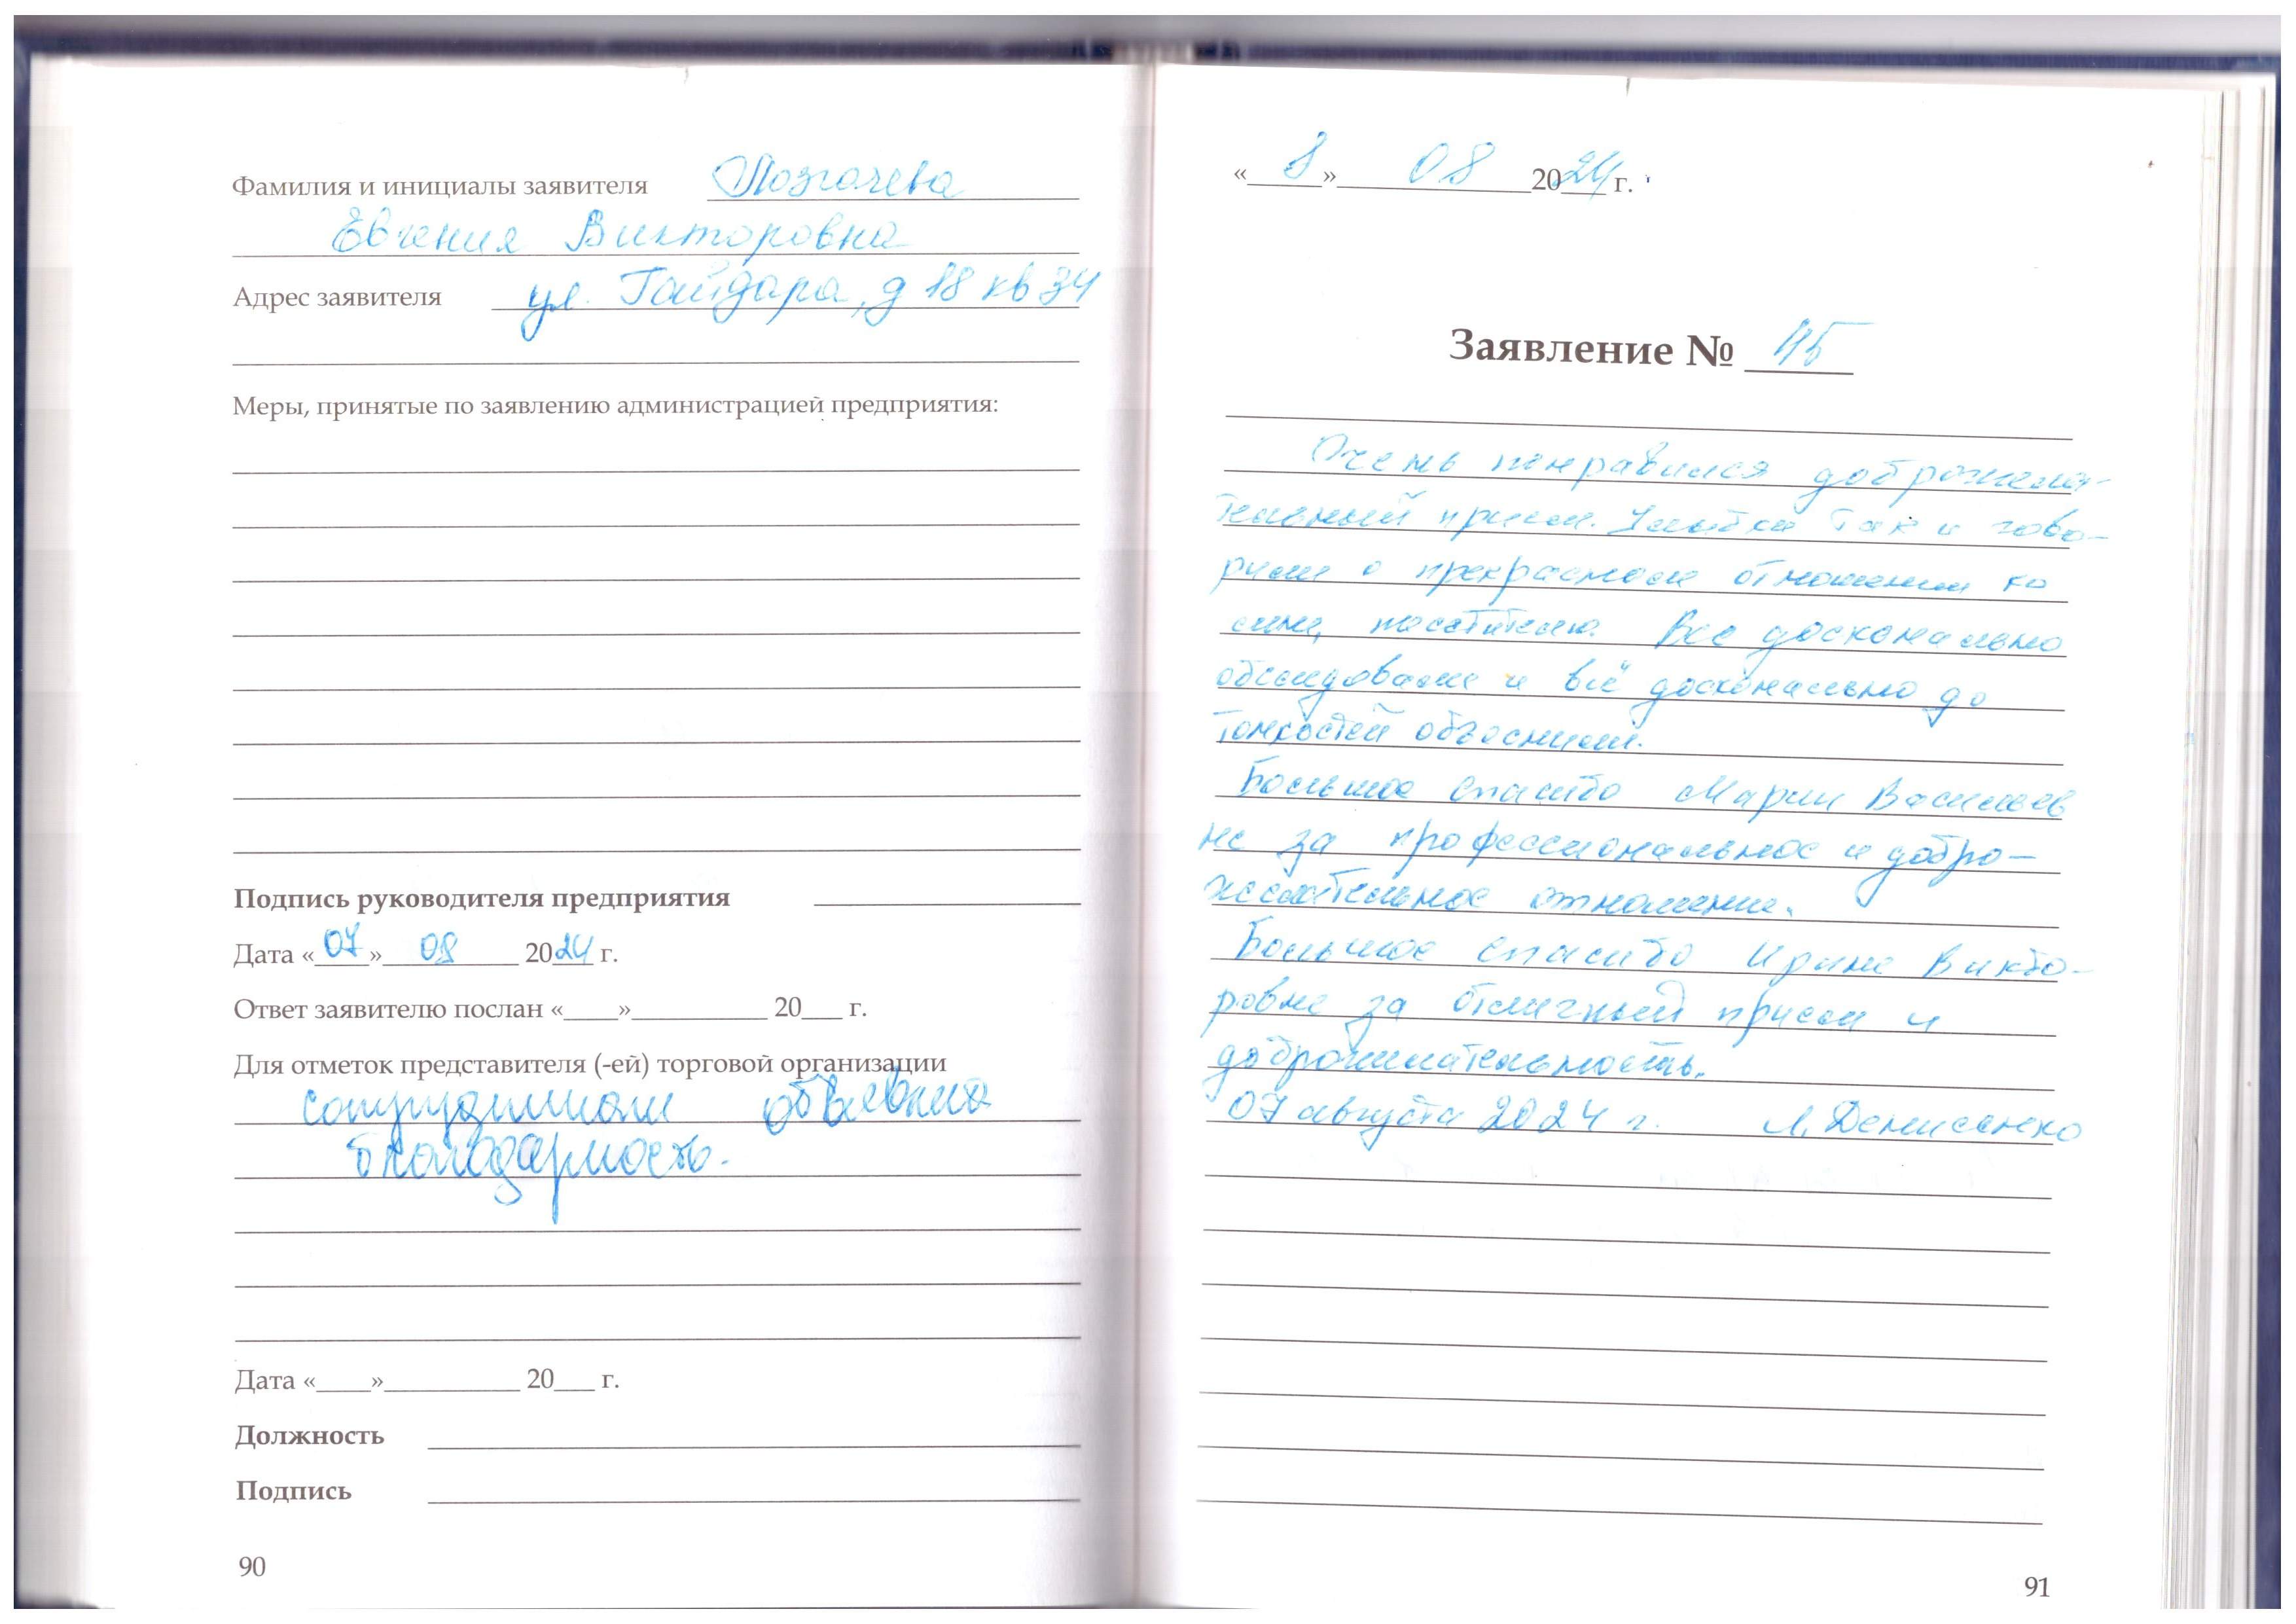 Фамилия и инициалы заявителя Позгачева
Евгения Викторовна
Адрес заявителя ул. Гайдара, д 18 кв 34
Меры, принятые по заявлению администрацией предприятия:
Подпись руководителя предприятия
Дата «07» 08 2024 г.
Ответ заявителю послан «____»__________ 20___ г.
Для отметок представителя (-ей) торговой организации
сотрудникам объявлена
благодарность.
Дата «____»__________ 20___ г.
Должность
Подпись
90
«8» 08 2024 г.
Заявление № 45
Очень понравился доброжела-
тельный прием. Улыбки так и гово-
рили о прекрасном отношении ко
мне, посетителю. Все досконально
обследовали и всё досконально до
тонкостей объяснили.
Большое спасибо Марии Васильев
не за профессиональное и добро-
желательное отношение.
Большое спасибо Ирине Викто-
ровне за отличный прием и
доброжилательность.
07 августа 2024 г. Л. Денисенко
91